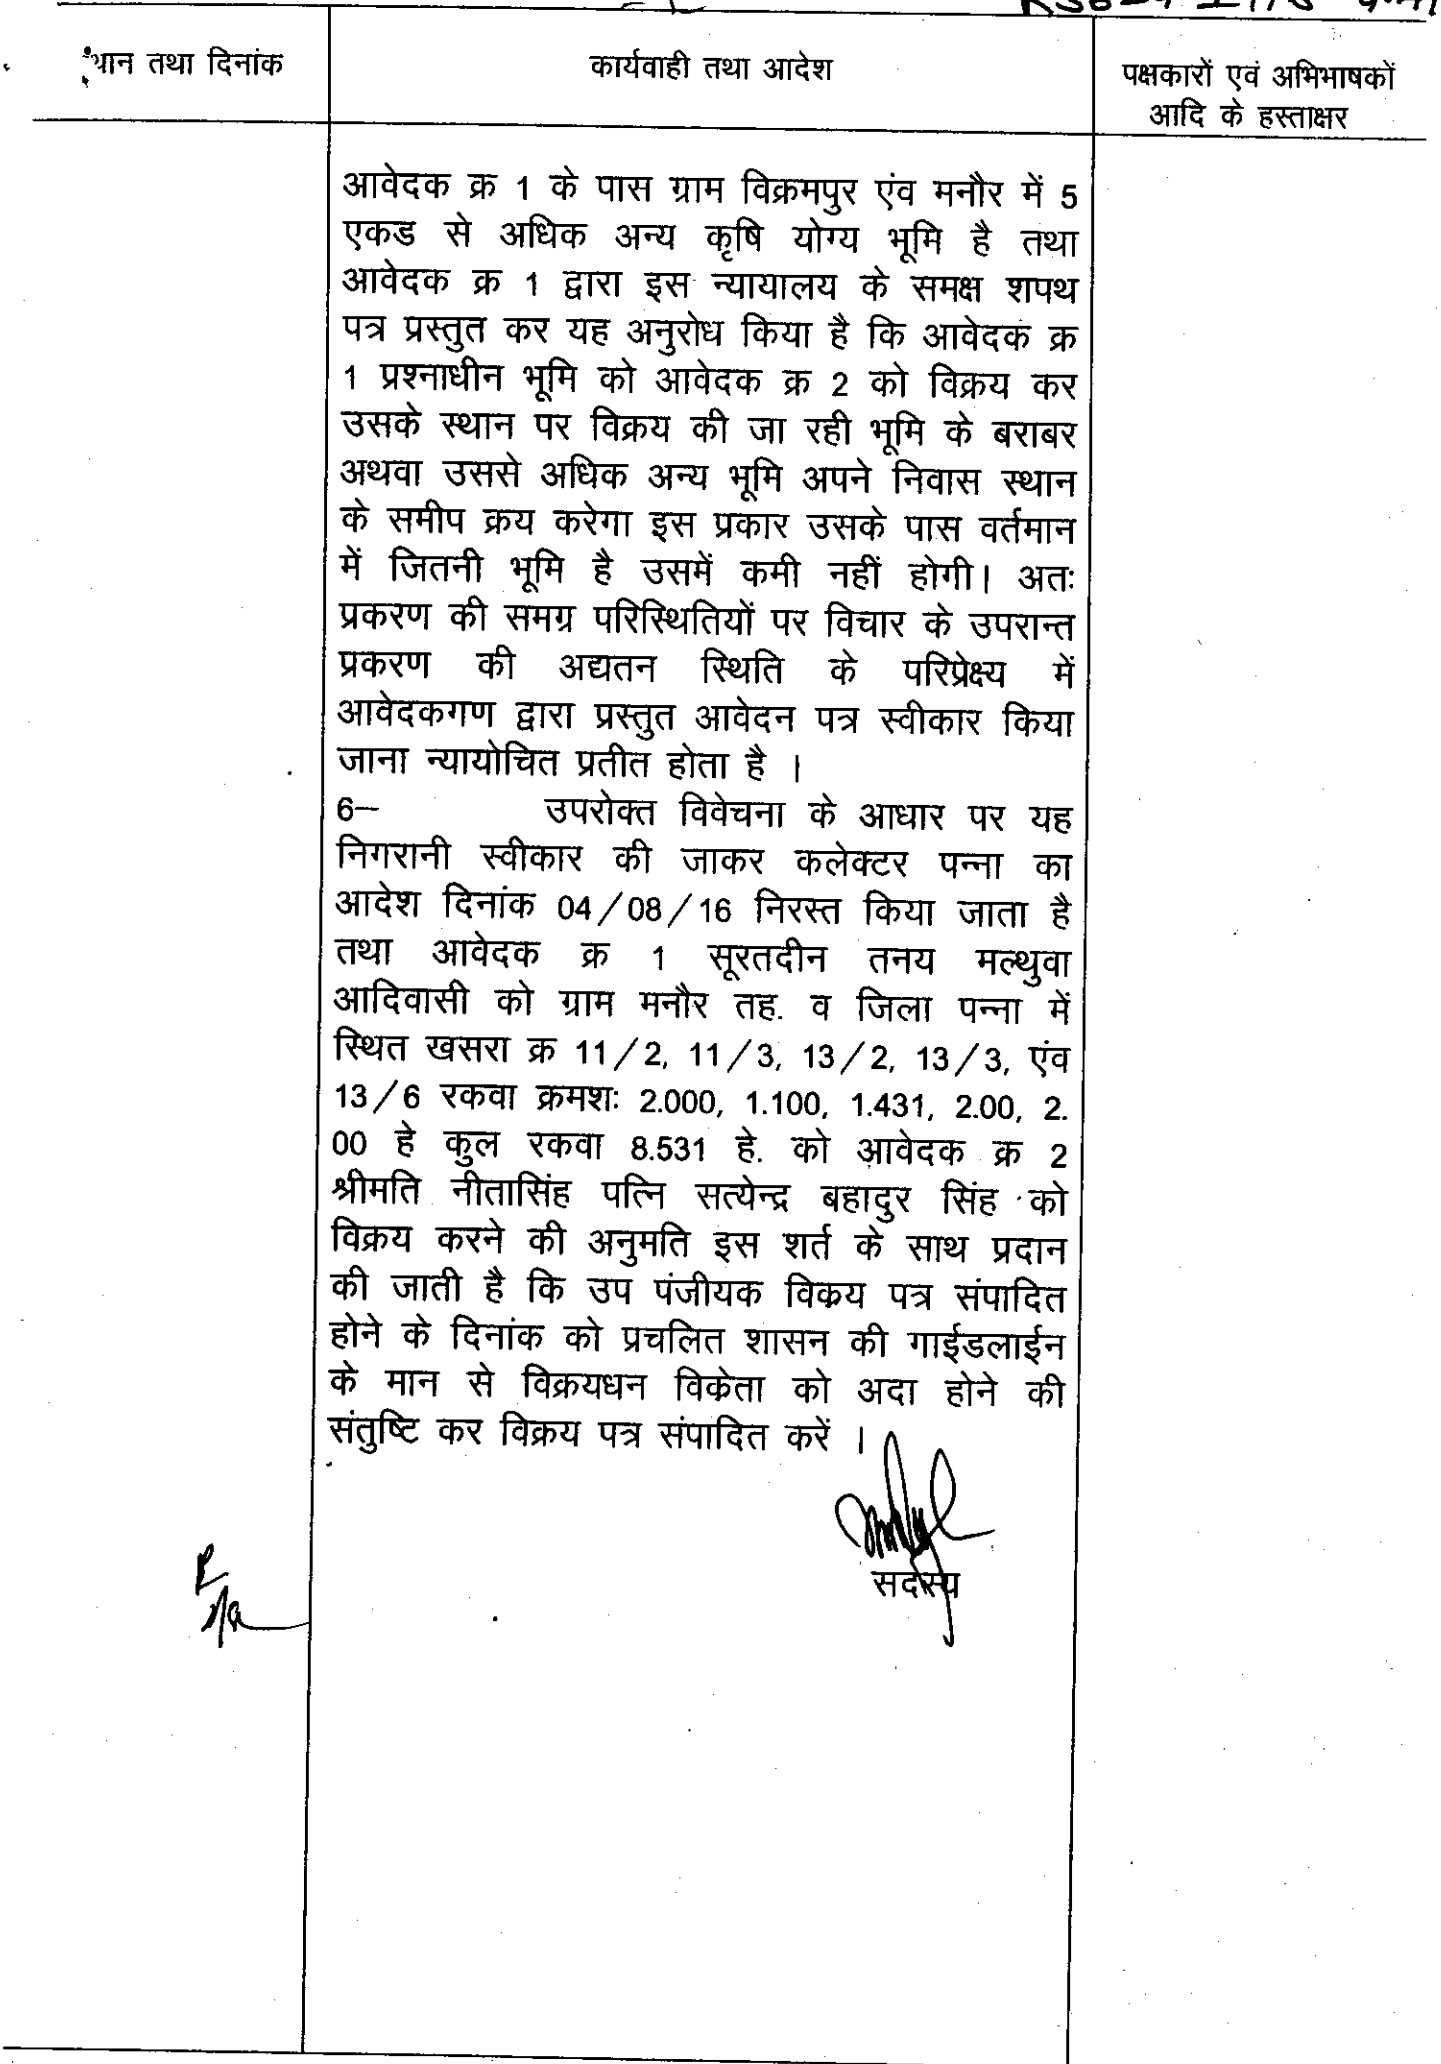 स्थान तथा दिनांक
कार्यवाही तथा आदेश
पक्षकारों एवं अभिभाषकों
आदि के हस्ताक्षर
आवेदक क्र 1 के पास ग्राम विक्रमपुर एंव मनौर में 5
एकड से अधिक अन्य कृषि योग्य भूमि है तथा
आवेदक क्र 1 द्वारा इस न्यायालय के समक्ष शपथ
पत्र प्रस्तुत कर यह अनुरोध किया है कि आवेदक क्र
1 प्रश्नाधीन भूमि को आवेदक क्र 2 को विक्रय कर
उसके स्थान पर विक्रय की जा रही भूमि के बराबर
अथवा उससे अधिक अन्य भूमि अपने निवास स्थान
के समीप क्रय करेगा इस प्रकार उसके पास वर्तमान
में जितनी भूमि है उसमें कमी नहीं होगी। अतः
प्रकरण की समग्र परिस्थितियों पर विचार के उपरान्त
प्रकरण की अद्यतन स्थिति के परिप्रेक्ष्य में
आवेदकगण द्वारा प्रस्तुत आवेदन पत्र स्वीकार किया
जाना न्यायोचित प्रतीत होता है ।
6— उपरोक्त विवेचना के आधार पर यह
निगरानी स्वीकार की जाकर कलेक्टर पन्ना का
आदेश दिनांक 04/08/16 निरस्त किया जाता है
तथा आवेदक क्र 1 सूरतदीन तनय मल्थुवा
आदिवासी को ग्राम मनौर तह. व जिला पन्ना में
स्थित खसरा क्र 11/2, 11/3, 13/2, 13/3, एंव
13/6 रकवा क्रमशः 2.000, 1.100, 1.431, 2.00, 2.
00 हे कुल रकवा 8.531 हे. को आवेदक क्र 2
श्रीमति नीतासिंह पत्नि सत्येन्द्र बहादुर सिंह को
विक्रय करने की अनुमति इस शर्त के साथ प्रदान
की जाती है कि उप पंजीयक विक्रय पत्र संपादित
होने के दिनांक को प्रचलित शासन की गाईडलाईन
के मान से विक्रयधन विक्रेता को अदा होने की
संतुष्टि कर विक्रय पत्र संपादित करें ।
सदस्य